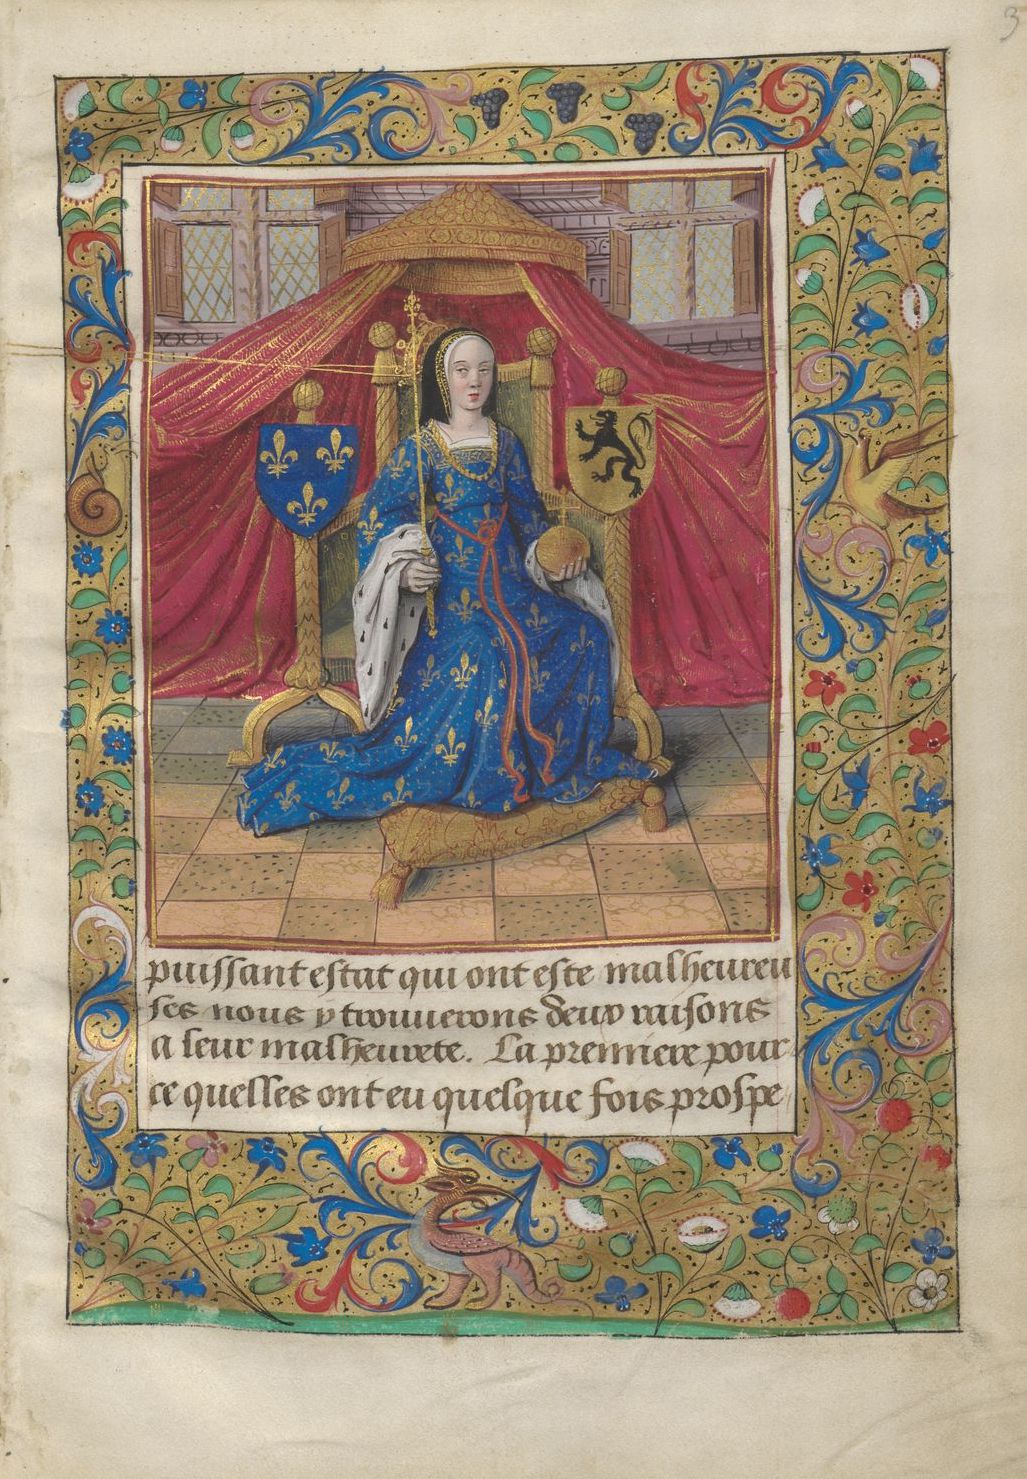 3
puissant estat qui ont este malheureu
ses nous y trouuerons deux raisons
a leur malheurete. La premiere pour
ce quelles ont eu quelque fois prospe